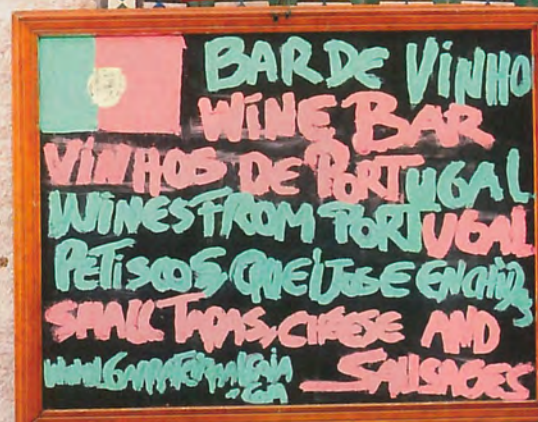 BAR DE VINHO
WINE BAR
VINHOS DE PORTUGAL
WINES FROM PORTUGAL
PETISCOS, QUEIJOS E
SMALL TAPAS, CHEESE AND
SAUSAGES